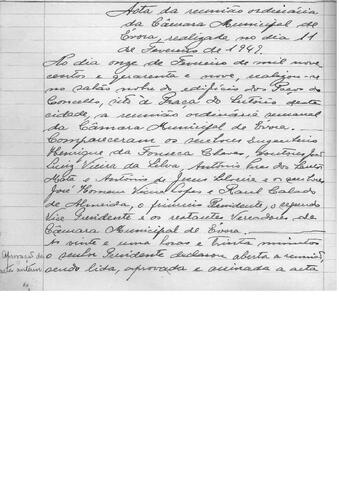 Acta da reunião ordinária
da Câmara Municipal de
Évora, realizada no dia 11
de Fevereiro de 1949.
No dia onze de Fevereiro de mil nove
centos e quarenta e nove, realizou-se
no salão nobre do edifício dos Paços do
Concelho, sito à Praça do Sertório desta
cidade, a reunião ordinária semanal
da Câmara Municipal de Évora.
Compareceram os senhores Engenheiro
Henrique da Fonseca Chaves, Doutores
Luiz Vieira da Silva, António
Mata e António de Jesus Silveira e os senhores
José Romano Vieira Lopes e Raul Calado
de Almeida, o primeiro Presidente, o segundo
Vice Presidente e os restantes Vereadores da
Câmara Municipal de Évora.
Às vinte e uma horas e trinta minutos
Aprovação da
o senhor Presidente declarou aberta a reunião,
acta anterior
sendo lida, aprovada e assinada a acta